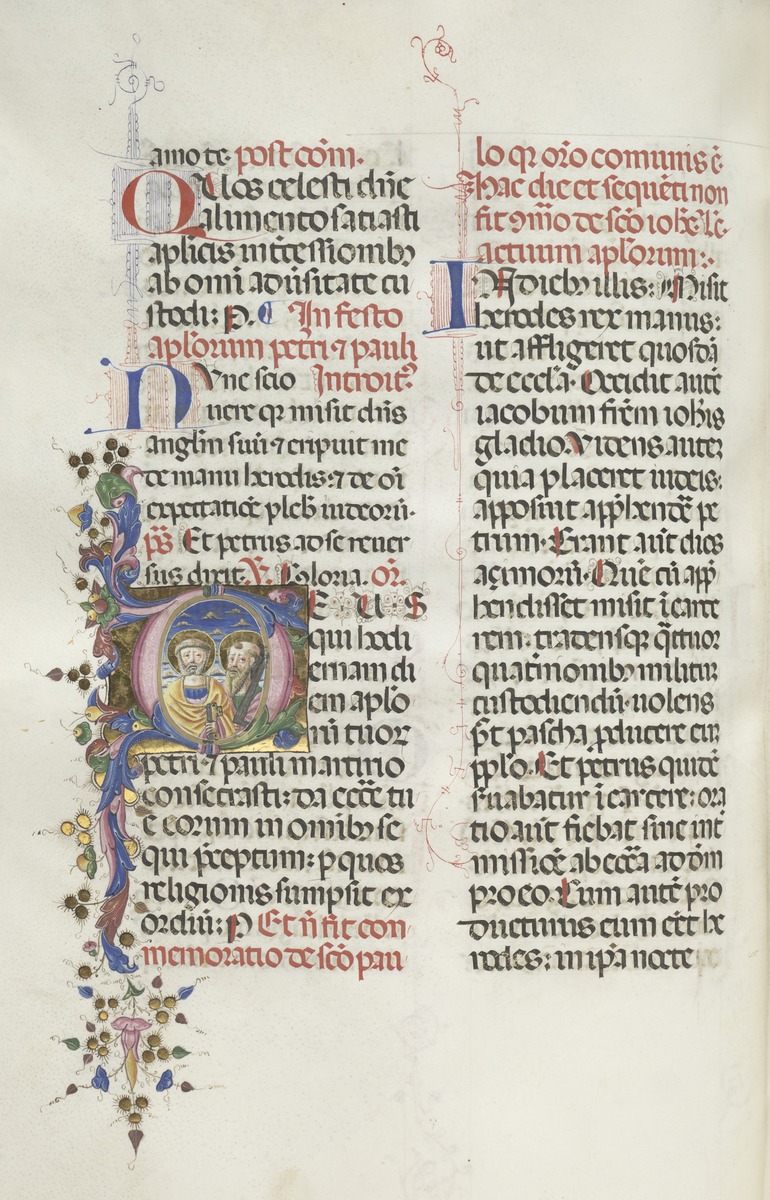 amo te. post com̄.
Quos celesti dn̄e
alimento satiasti
apl̄icis int̄cessionib⁊
ab omi aduʼsitate cu
stodi: P. ¶ In festo
apl̄orum petri ⁊ pauli
Nunc scio Introit⁹
uere qꝛ misit dn̄s
angl̄m suū ⁊ eripuit me
de manu herodis: ⁊ de oī
expectatiōe pleb̄ iudeorū.
ps̄ Et petrus ad se reuer
sus dixit. V̄. Gloria. or̄.
DEUS
qui hodi
ernam di
em apl̄o
rū tuoꝝ
petri ⁊ pauli martirio
consecrasti: da eccē tu
e eorum in omib⁊ se
qui p̄ceptum: p quos
religionis sumpsit ex
ordiū: P Et ñ fit com
memoratio de sc̄o pau
lo qꝛ or̄o comunis ē.
Hac die et sequēti non
fit ꝯmō de sc̄o ioh̄e. Lc̄.
actuum apl̄orum:.
IN dieb⁊ illis: Misit
herodes rex manus:
ut affligeret quosdā
de eccl̄a. Occidit autē
iacobum frēm ioh̄is
gladio. Videns autez
quia placeret iudeis:
apposuit app̄hendē pe
trum. Erant aūt dies
açimorū. Quē cū app̄
hendisset misit ī carce
rem. tradens qꝫ q̄ttuor
quat̄nionib⁊ militū
custodiendū. uolens
p̄t pascha ꝓducere eū
pp̄lo. Et petrus quidē
s̄uabatur ī carcere: ora
tio aūt fiebat sine int̄
missiōe ab ecc̄a ad dm̄
pro eo. Cum autē pro
ducturus eum eēt he
rodes: in ip̄a nocte